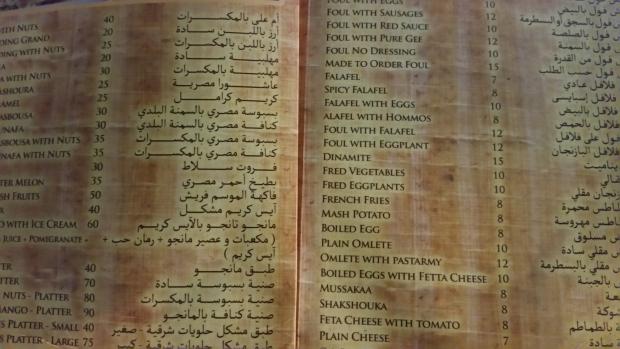 WITH NUTS 40 أم على بالمكسرات
DING GRAND 20 أرز باللبن سادة
DING WITH NUTS 30 أرز باللبن بالمكسرات
20 مهلبية سادة
A WITH NUTS 30 مهلبية بالمكسرات
ASHOURA 25 عاشورا مصرية
AMEL 25 كريم كرامل
ASBOUSA 30 بسبوسة مصري بالسمنة البلدي
UNAFA 30 كنافة مصري بالسمنة البلدي
ASBOUSA WITH NUTS 35 بسبوسة مصري بالمكسرات
UNAFA WITH NUTS 35 كنافة مصري بالمكسرات
30 فروت سلاط
TER MELON 35 بطيخ أحمر مصري
SH FRUITS 50 فاكهة الموسم فريش
40 آيس كريم مشكل
O WITH ICE CREAM 60 مانجو تانجو بالآيس كريم
JUICE + POMIGRANATE + ( مكعبات و عصير مانجو + رمان حب +
آيس كريم )
TER 40 طبق مانجو
TTER 70 صنية بسبوسة سادة
NUTS - PLATTER 80 صنية بسبوسة بالمكسرات
MANGO - PLATTER 90 صنية كنافة بالمانجو
TS PLATTER - SMALL 40 طبق مشكل حلويات شرقية - صغير
TS PLATTER - LARGE 75 طبق مشكل حلويات شرقية - كبير
FOUL WITH EGGS 10 فول بالبيض
FOUL WITH SAUSAGES 12 فول بالسجق أو البسطرمة
FOUL WITH RED SAUCE 10 فول بالصلصة
FOUL WITH PURE GEF 12 فول بالسمنة
FOUL NO DRESSING 10 فول من القدرة
MADE TO ORDER FOUL 15 فول حسب الطلب
FALAFEL 7 فلافل عادي
SPICY FALAFEL 8 فلافل اسبايسى
FALAFEL WITH EGGS 10 فلافل بالبيض
ALAFEL WITH HOMMOS 8 فلافل بالحمص
FOUL WITH FALAFEL 12 فول على فلافل
FOUL WITH EGGPLANT 12 البازنجان
DINAMITE 15 يناميت
FRED VEGETABLES 10
FRED EGGPLANTS 10 نجان مقلي
FRENCH FRIES 8 طاطس محمرة
MASH POTATO 8 اطس مهروسة
BOILED EGG 8 مسلوق
PLAIN OMLETE 8 مقلي سادة
OMLETE WITH PASTARMY 12 مقلي بالبسطرمة
BOILED EGGS WITH FETTA CHEESE 10 بالجبنة
MUSSAKAA 8
SHAKSHOUKA 8 شوكة
FETA CHEESE WITH TOMATO 8 بالطماطم
PLAIN CHEESE 7 سادة